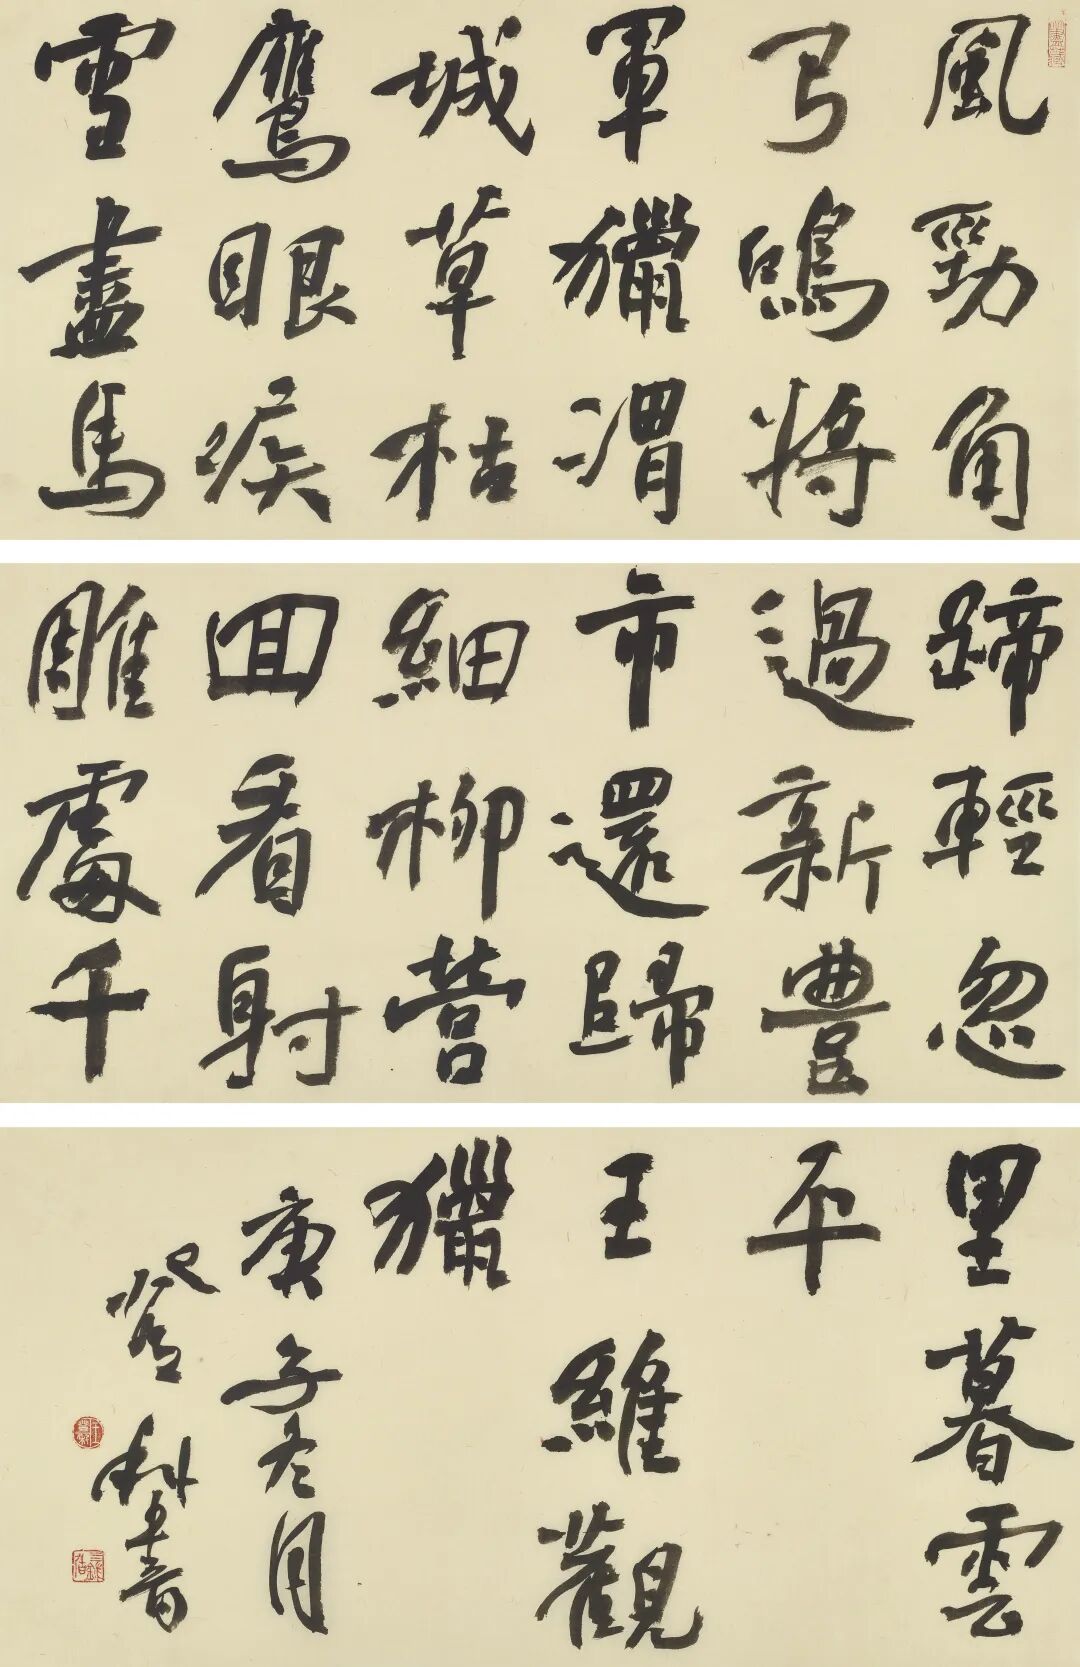 風勁角
弓鳴將
軍獵渭
城草枯
鷹眼疾
雪盡馬
蹄輕忽
過新豐
市還歸
細柳營
回看射
雕處千
里暮雲
平
王維觀
獵
庚子冬月
書